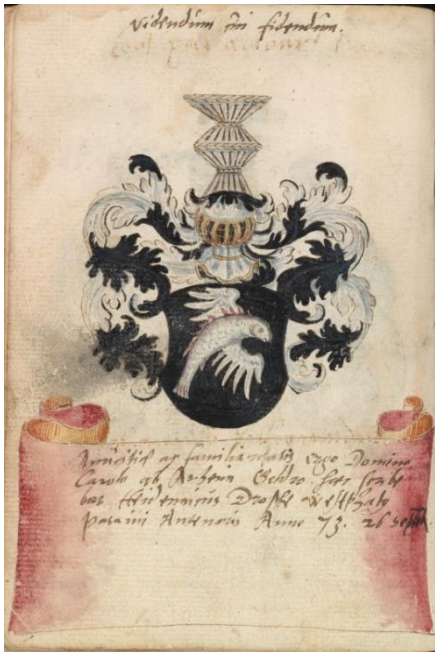 Videndum cui fidendum.
Amicitiæ ac familiaritatis ergo Domino
Carolo ab Arhem Geldro hæc scribe
bat Heidenricus Droste Westphalus
Patavii Antenoris Anno 73. 26 Sept.